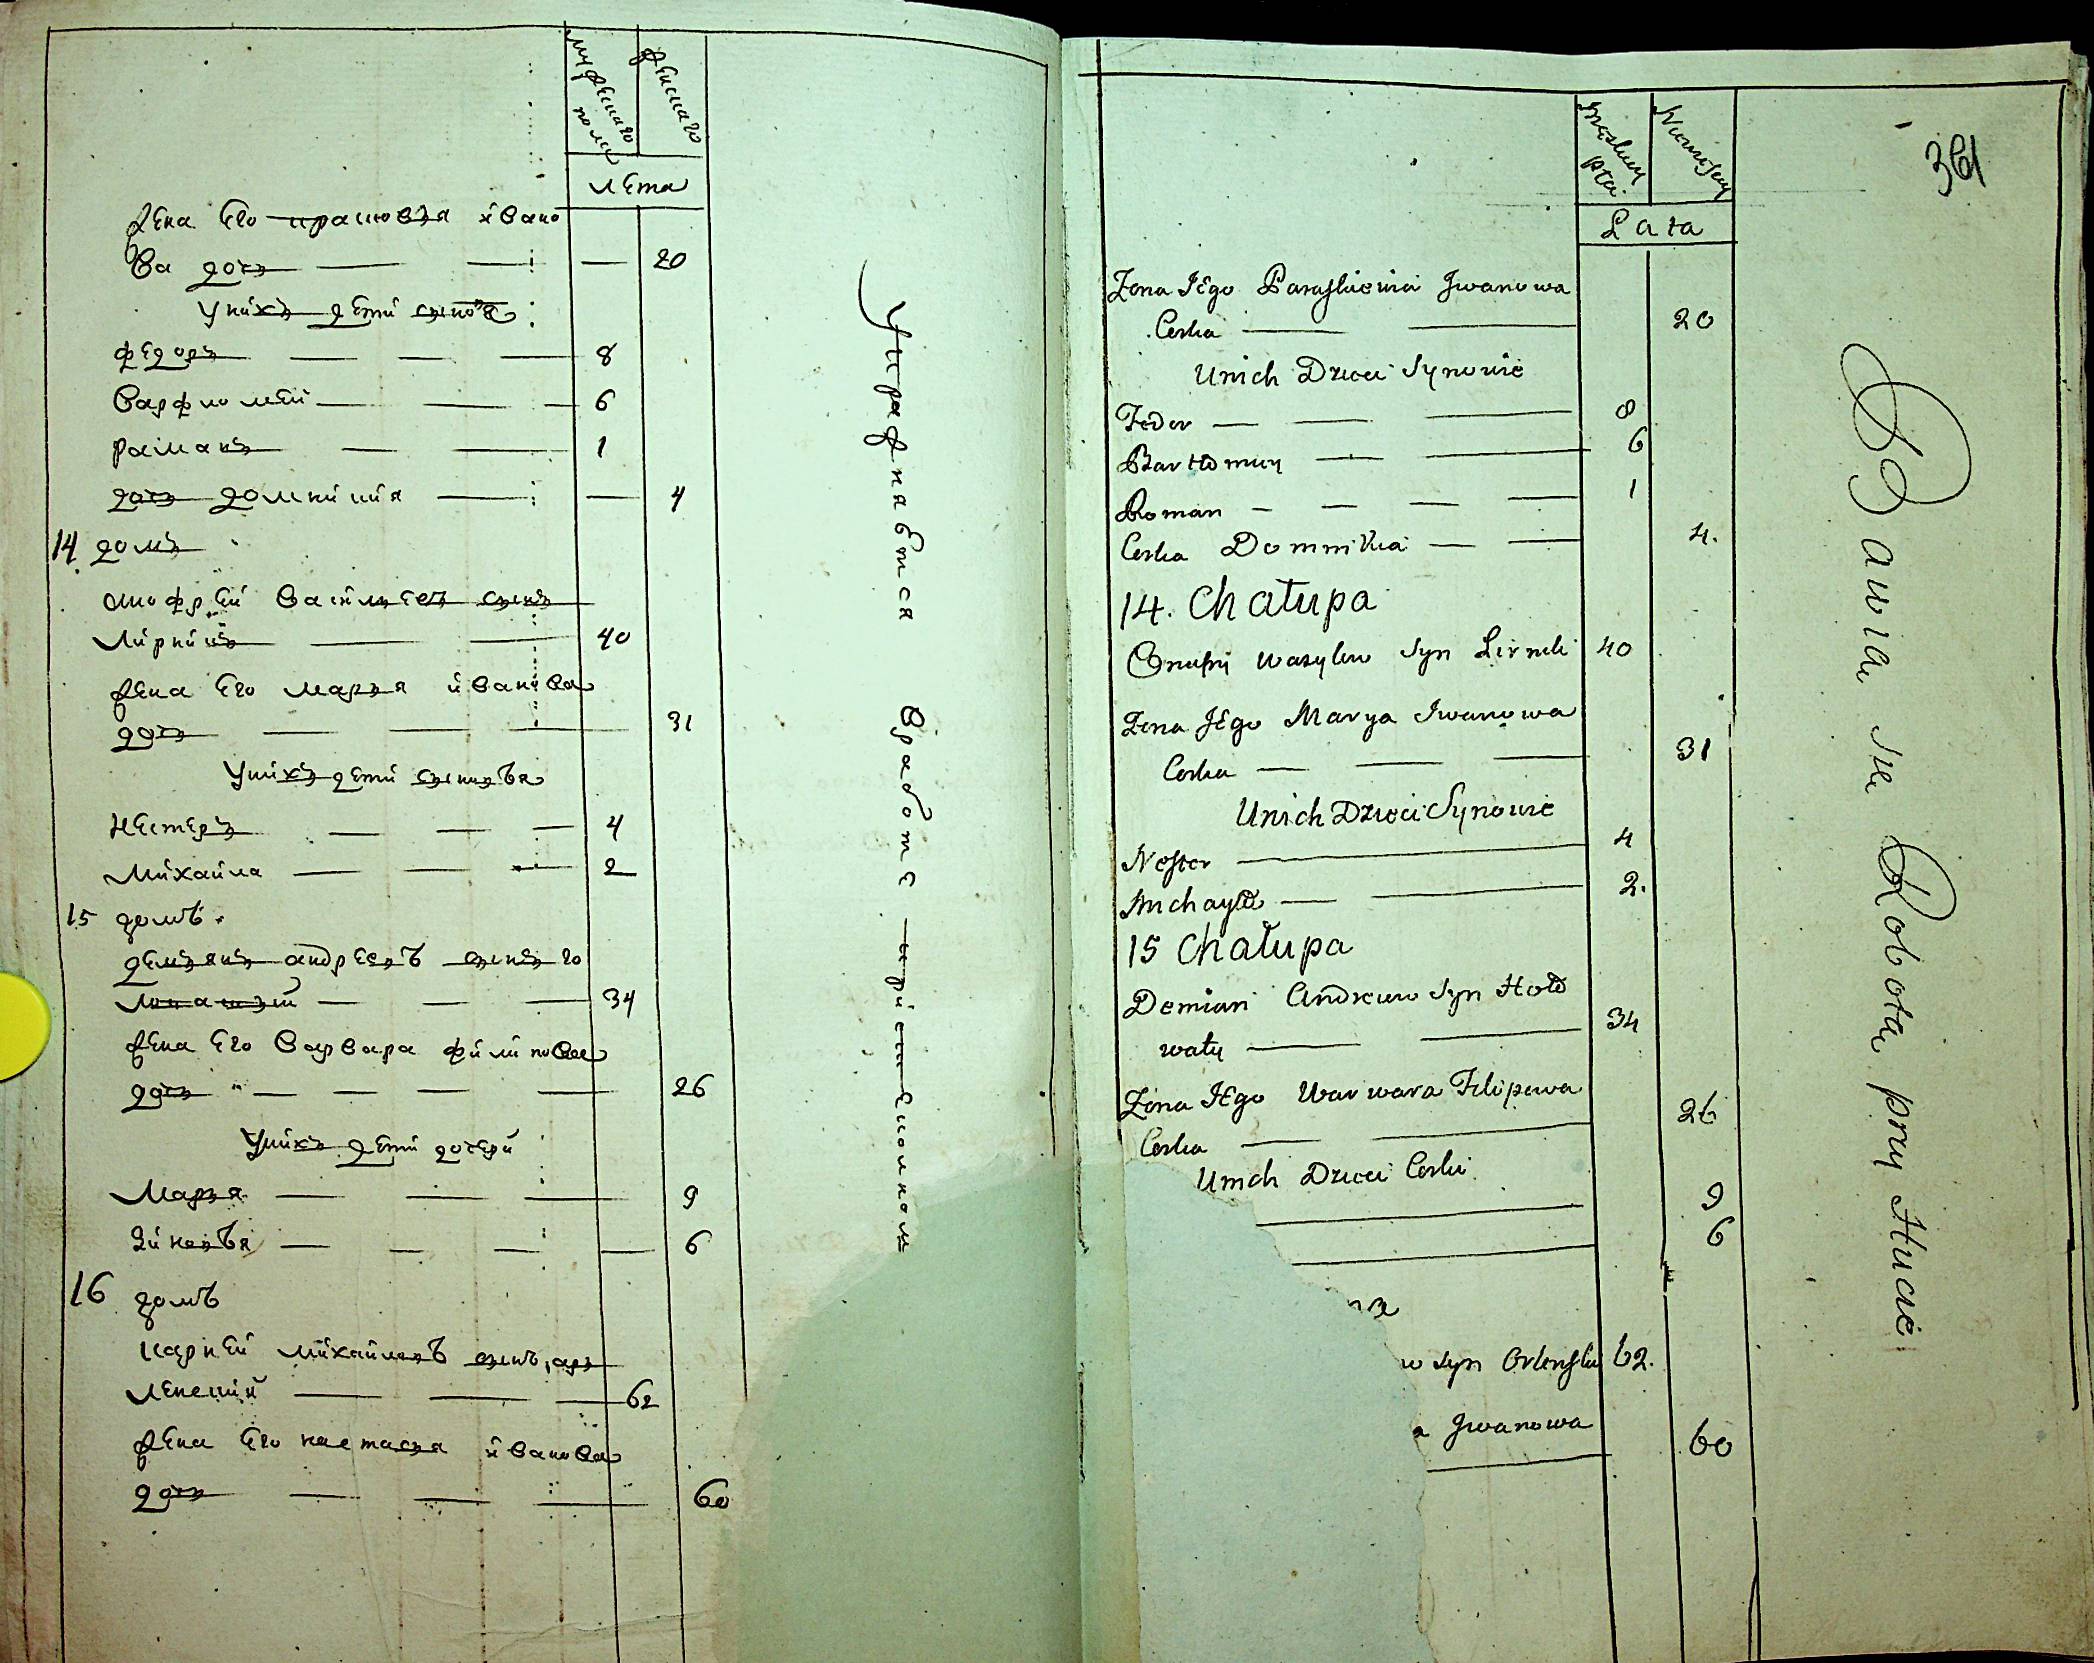 мужеска го
полу
женска го
лета
жена его прасковья ивано
ва дочь 20
у них дети сыновя
федоръ 8
Варфломей 6
романъ 1
дочь домникия 4
14 домъ
онофрей Васильевъ сынъ
Лирникъ 40
жена его марья иванова
дочь 31
у нихъ дети сыновья
Нестеръ 4
Михайла 2
15 домъ.
демьянъ андреевъ сынъ го
34
жена его Варвара филипова
дочь 26
у нихъ дети дочери
Марья 9
Зиновья 6
16 домъ
карней михайловъ сынъ, ар
ленский 62
жена его настасья иванова
дочь 60
Упражнявтся Вработе при
361
Męskiey
płci
Lata
Żona Jego Paraskiewia Jwanowa
Corka 20
Unich Dzieci Synowie
Fedor 8
Bartłomiey 6
Roman 1
Corka Domnikia 4.
14. Chałupa
Onufry Wasylow Syn Lirnik 40
Żona Jego Marya Jwanowa
Corka 31
Unich Dzieci Synowie
Nester 4
Michayło 2.
15 Chałupa
Demian Andreiow Syn Hoło
waty 34
Żona Jego Warwara Filipowa
Corka 26
Unich Dzieci Corki
9
6
w Syn Orlenski 62.
a Jwanowa
60
Bawia sie Robota przy Hucie